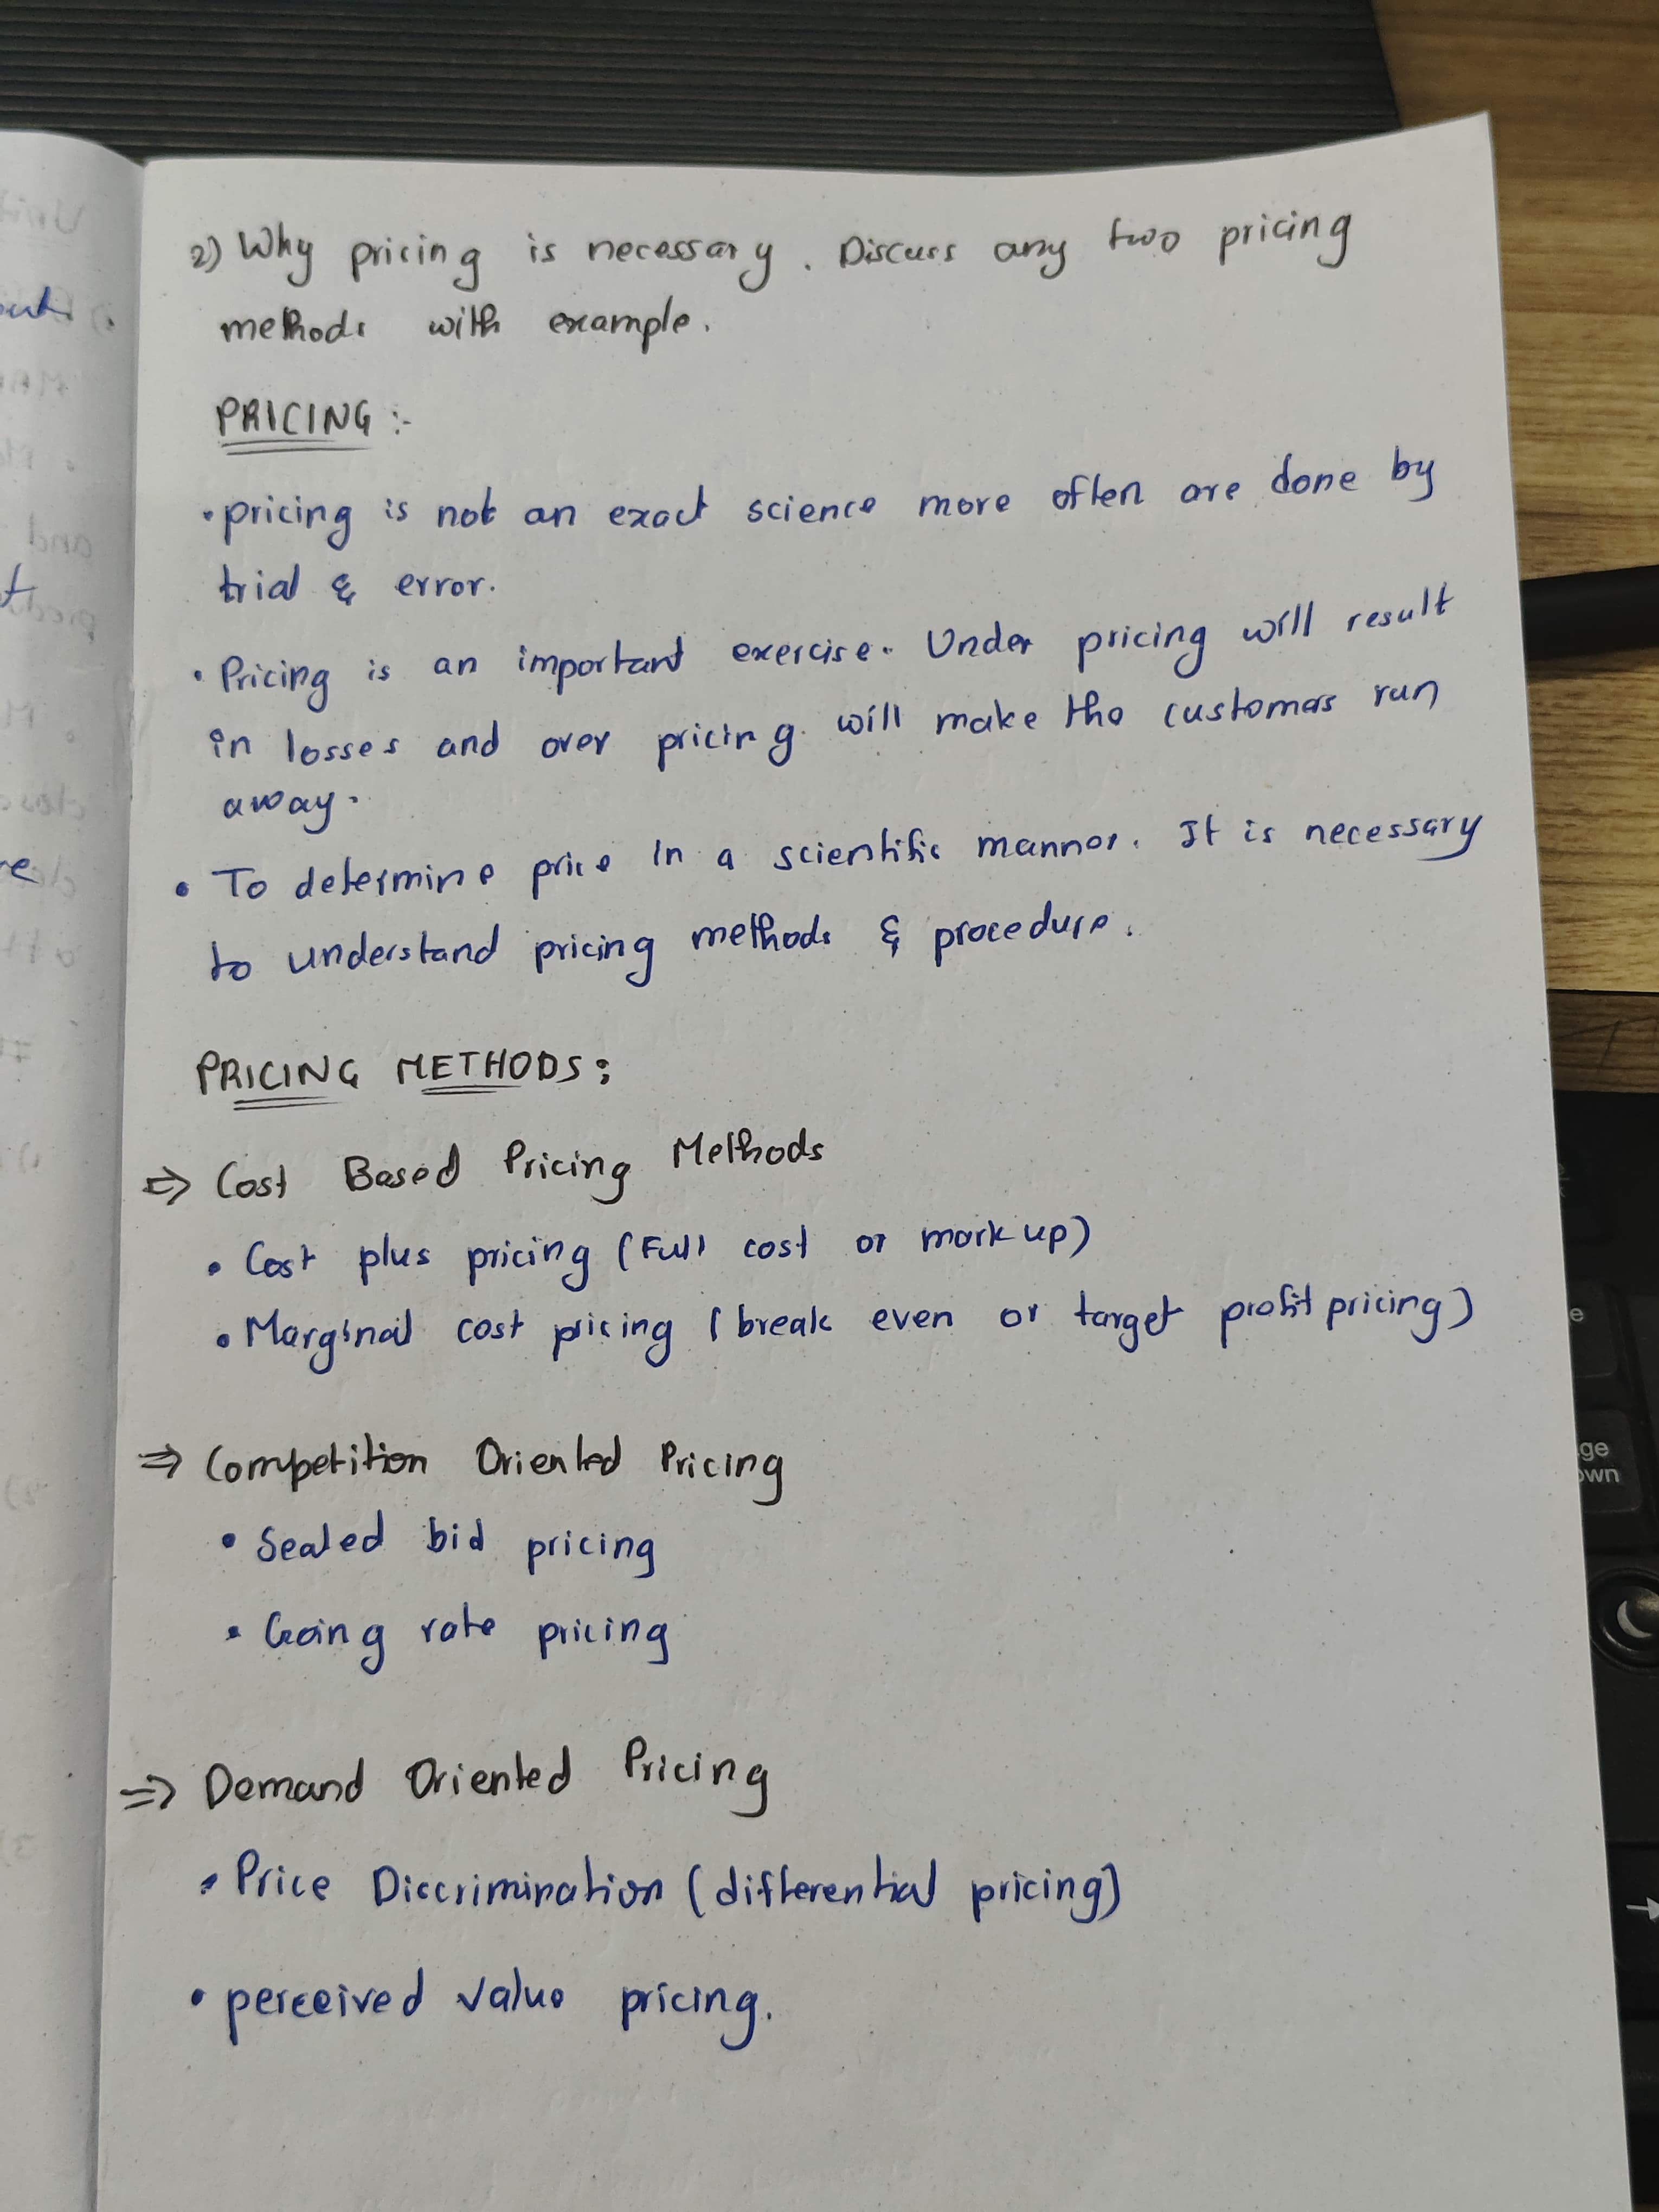 2) Why pricing is necessary. Discuss any two pricing
methods with example.
PRICING :-
• pricing is not an exact science more often are done by
trial & error.
• Pricing is an important exercise. Under pricing will result
in losses and over pricing will make the customers run
away.
• To determine price in a scientific manner. It is necessary
to understand pricing methods & procedure.
PRICING METHODS:
⇒ Cost Based Pricing Methods
• Cost plus pricing (Full cost or mark up)
• Marginal cost pricing (break even or target profit pricing)
⇒ Competition Oriented Pricing
• Sealed bid pricing
• Going rate pricing
⇒ Demand Oriented Pricing
• Price Discrimination (differential pricing)
• perceived value pricing.